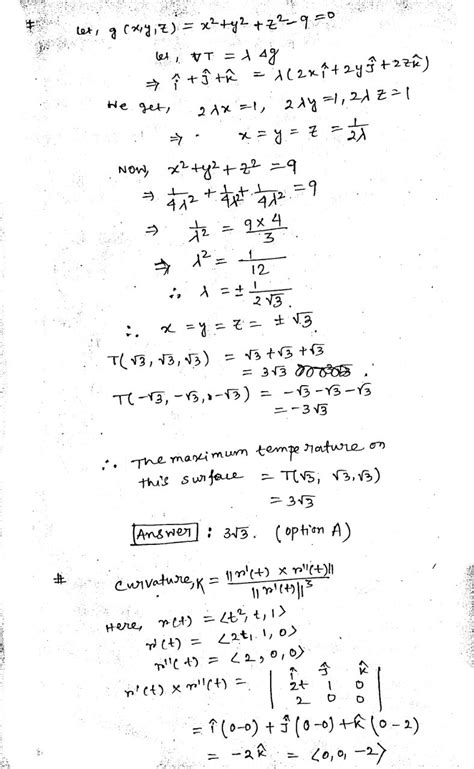 # Let, g(x,y,z) = x²+y²+z²-9=0
Let, ∇T = λ Δg
⇒ î+ĵ+k̂ = λ(2xî+2yĵ+2zk̂)
We get, 2λx=1, 2λy=1, 2λz=1
⇒ x=y=z=1/2λ
Now, x²+y²+z²=9
⇒ 1/4λ² + 1/4λ² + 1/4λ² = 9
⇒ 1/λ² = 9×4/3
⇒ λ² = 1/12
∴ λ = ± 1/2√3
∴ x=y=z= ±√3
T(√3, √3, √3) = √3+√3+√3
= 3√3
T(-√3, -√3, -√3) = -√3-√3-√3
= -3√3
∴ The maximum temperature on
this surface = T(√3, √3, √3)
= 3√3
Answer : 3√3. (option A)
# Curvature, K = ||r'(t) × r''(t)|| / ||r'(t)||³
Here, r(t) = <t², t, 1>
r'(t) = <2t, 1, 0>
r''(t) = <2, 0, 0>
r'(t) × r''(t) = | î ĵ k̂ |
| 2t 1 0 |
| 2 0 0 |
= î(0-0) + ĵ(0-0) + k̂(0-2)
= -2k̂ = <0, 0, -2>